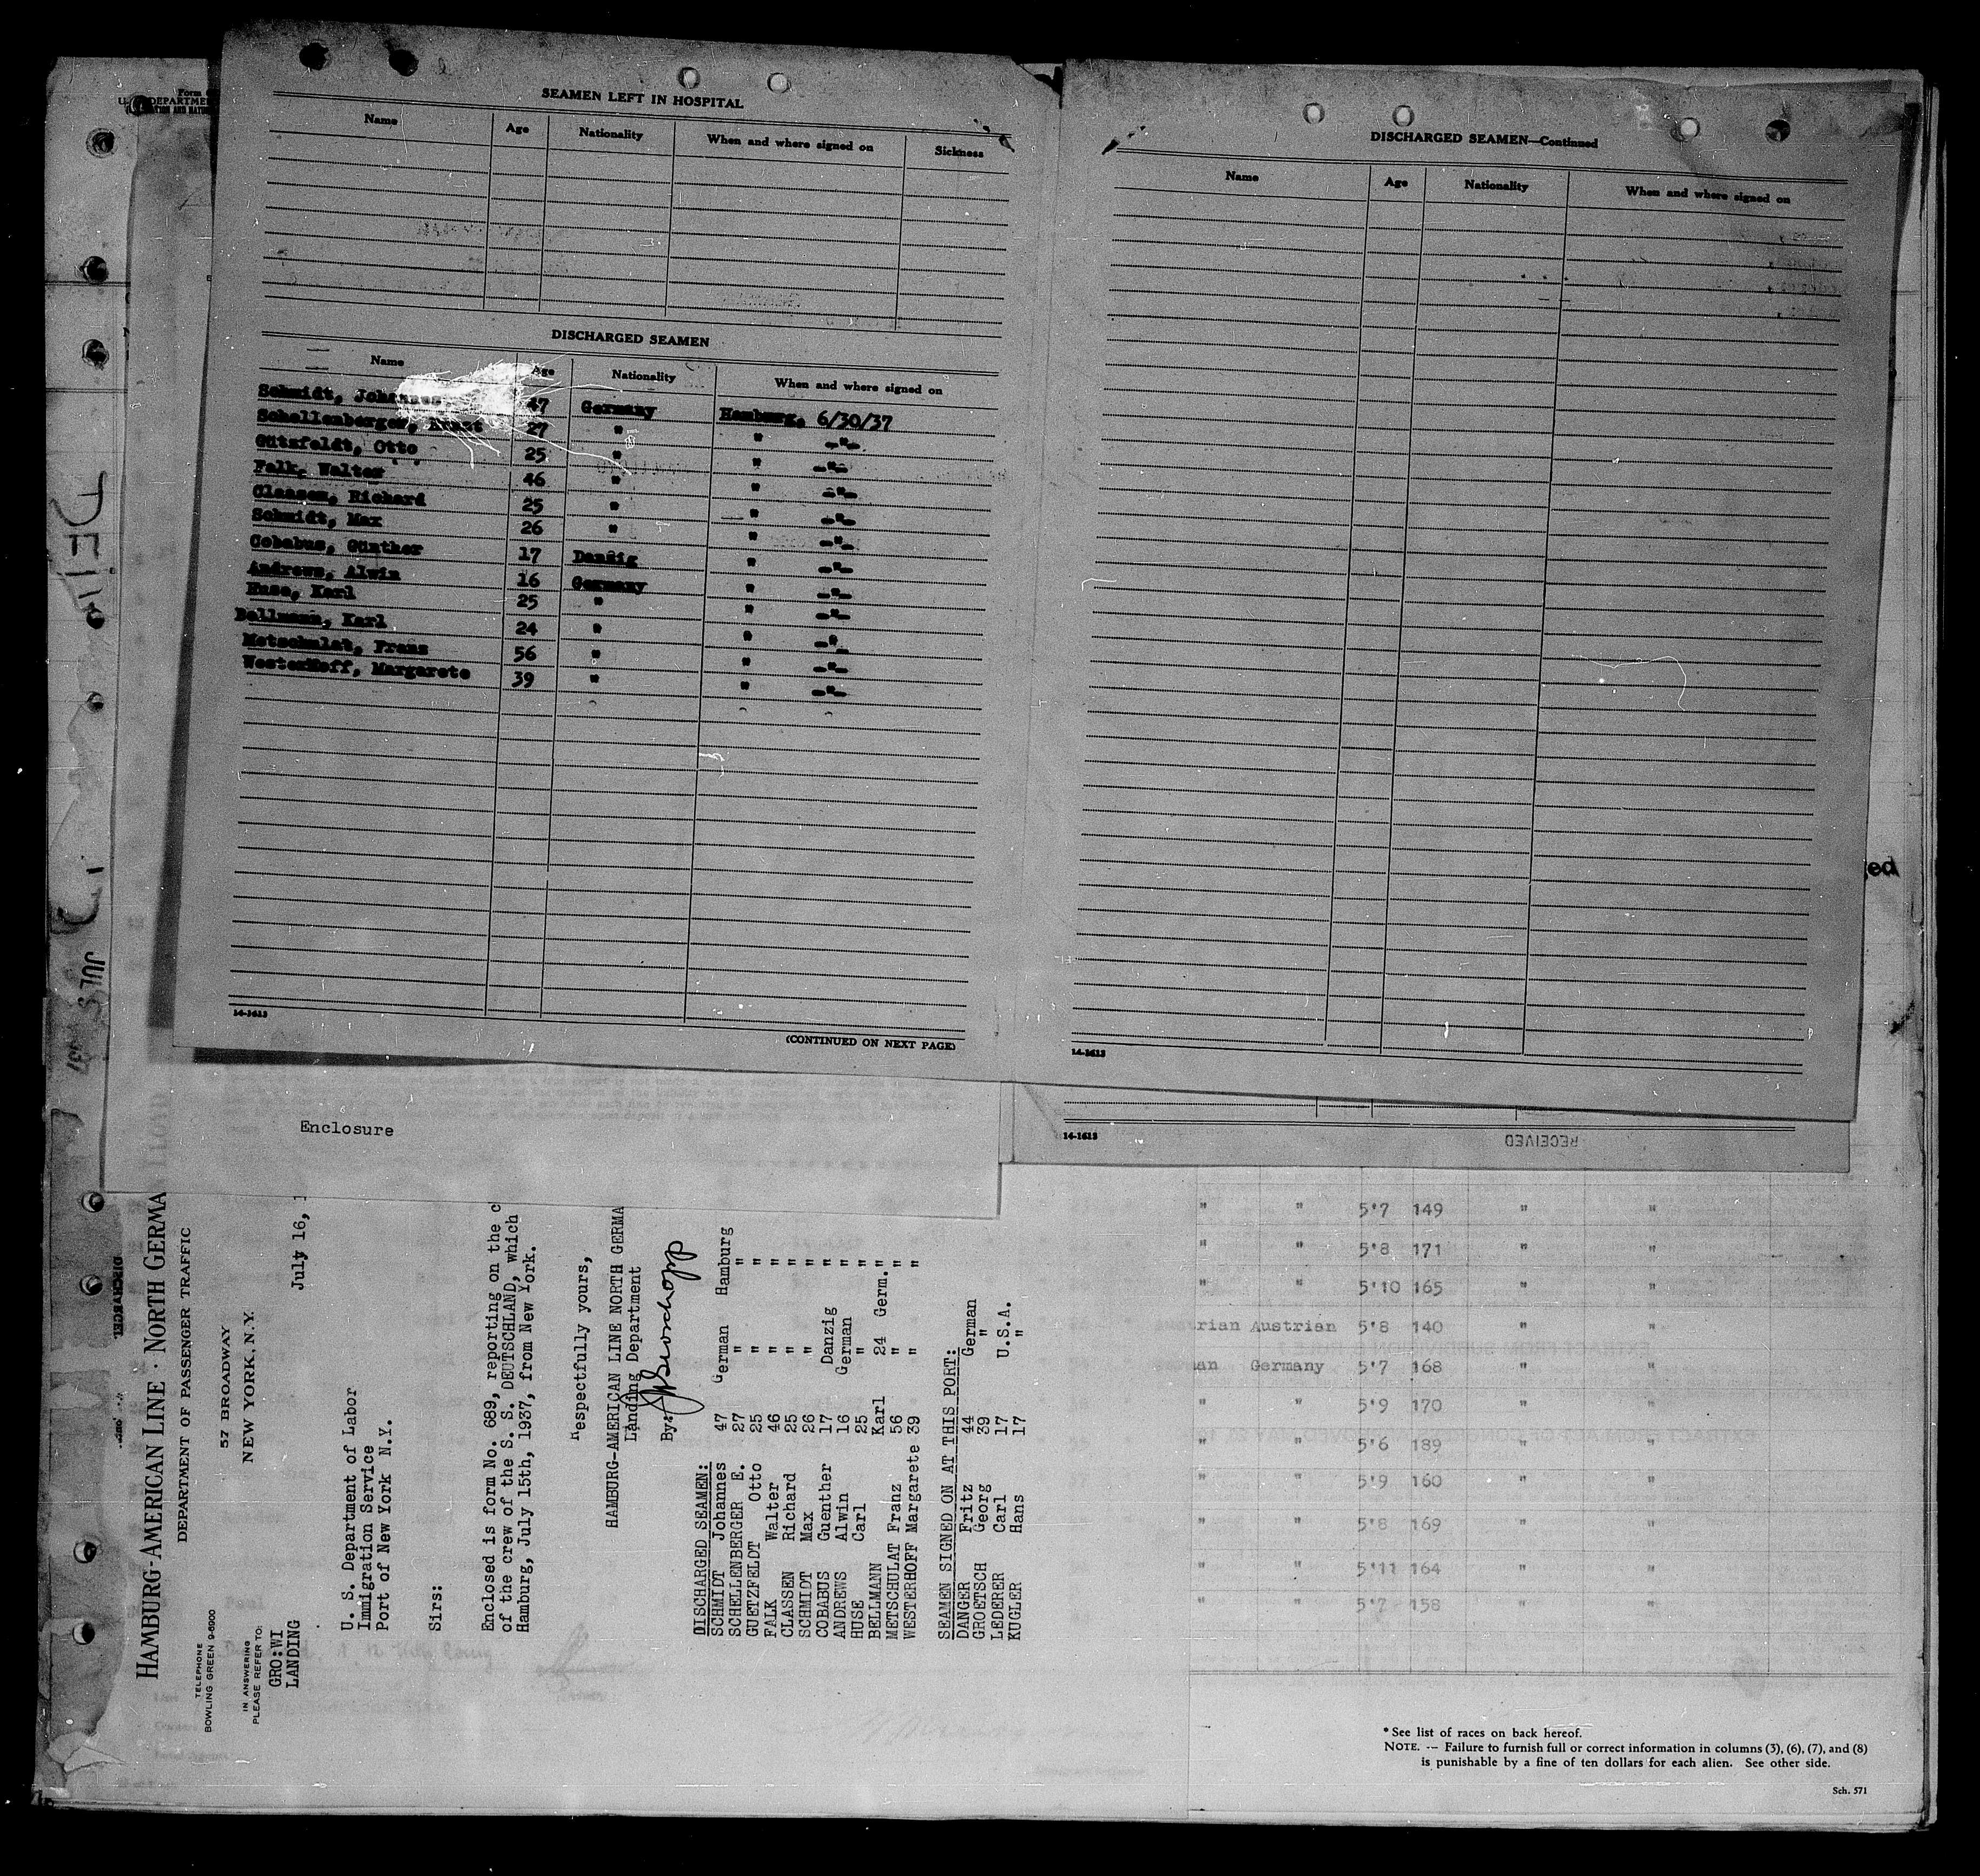 SEAMEN LEFT IN HOSPITAL
Name Age Nationality When and where signed on Sickness
DISCHARGED SEAMEN
Name Age Nationality When and where signed on
Schmidt, Johannes 47 Germany Hamburg, 6/30/37
Schellenberger, Ernst 27 " " -"-
Gützfeldt, Otto 25 " " -"-
Falk, Walter 46 " " -"-
Classen, Richard 25 " " -"-
Schmidt, Max 26 " " -"-
Cobabus, Günther 17 Danzig " -"-
Andrews, Alwin 16 Germany " -"-
Huse, Karl 25 " " -"-
Bellmann, Karl 24 " " -"-
Metschulat, Franz 56 " " -"-
Westerhoff, Margarete 39 " " -"-
14-1613
(CONTINUED ON NEXT PAGE)
DISCHARGED SEAMEN—Continued
Name Age Nationality When and where signed on
14-1613
14-1613
RECEIVED
ed
Enclosure
HAMBURG-AMERICAN LINE · NORTH GERMA
DEPARTMENT OF PASSENGER TRAFFIC
57 BROADWAY
NEW YORK, N.Y.
TELEPHONE
BOWLING GREEN 9-6900
IN ANSWERING
PLEASE REFER TO:
GRO:WI
LANDING
July 16,
U. S. Department of Labor
Immigration Service
Port of New York N.Y.
Sirs:
Enclosed is form No. 689, reporting on the c
of the crew of the S. S. DEUTSCHLAND, which
Hamburg, July 15th, 1937, from New York.
Respectfully yours,
HAMBURG-AMERICAN LINE NORTH GERMA
Landing Department
By:
DISCHARGED SEAMEN:
SCHMIDT Johannes 47 German Hamburg
SCHELLENBERGER E. 27 " "
GUETZFELDT Otto 25 " "
FALK Walter 46 " "
CLASSEN Richard 25 " "
SCHMIDT Max 26 " "
COBABUS Guenther 17 Danzig "
ANDREWS Alwin 16 German "
HUSE Carl 25 " "
BELLMANN Karl 24 Germ. "
METSCHULAT Franz 56 " "
WESTERHOFF Margarete 39 " "
SEAMEN SIGNED ON AT THIS PORT:
DANGER Fritz 44 German
GROETSCH Georg 39 "
LEDERER Carl 17 U.S.A.
KUGLER Hans 17 "
" " 5'7 149 " "
" 5'8 171 " "
" 5'10 165 " "
strian Austrian 5'8 140 " "
an Germany 5'7 168 " "
" " 5'9 170 " "
" " 5'6 189 " "
" " 5'9 160 " "
" " 5'8 169 " "
" " 5'11 164 " "
" " 5'7 158 " "
* See list of races on back hereof.
NOTE. — Failure to furnish full or correct information in columns (3), (6), (7), and (8)
is punishable by a fine of ten dollars for each alien. See other side.
Sch. 571